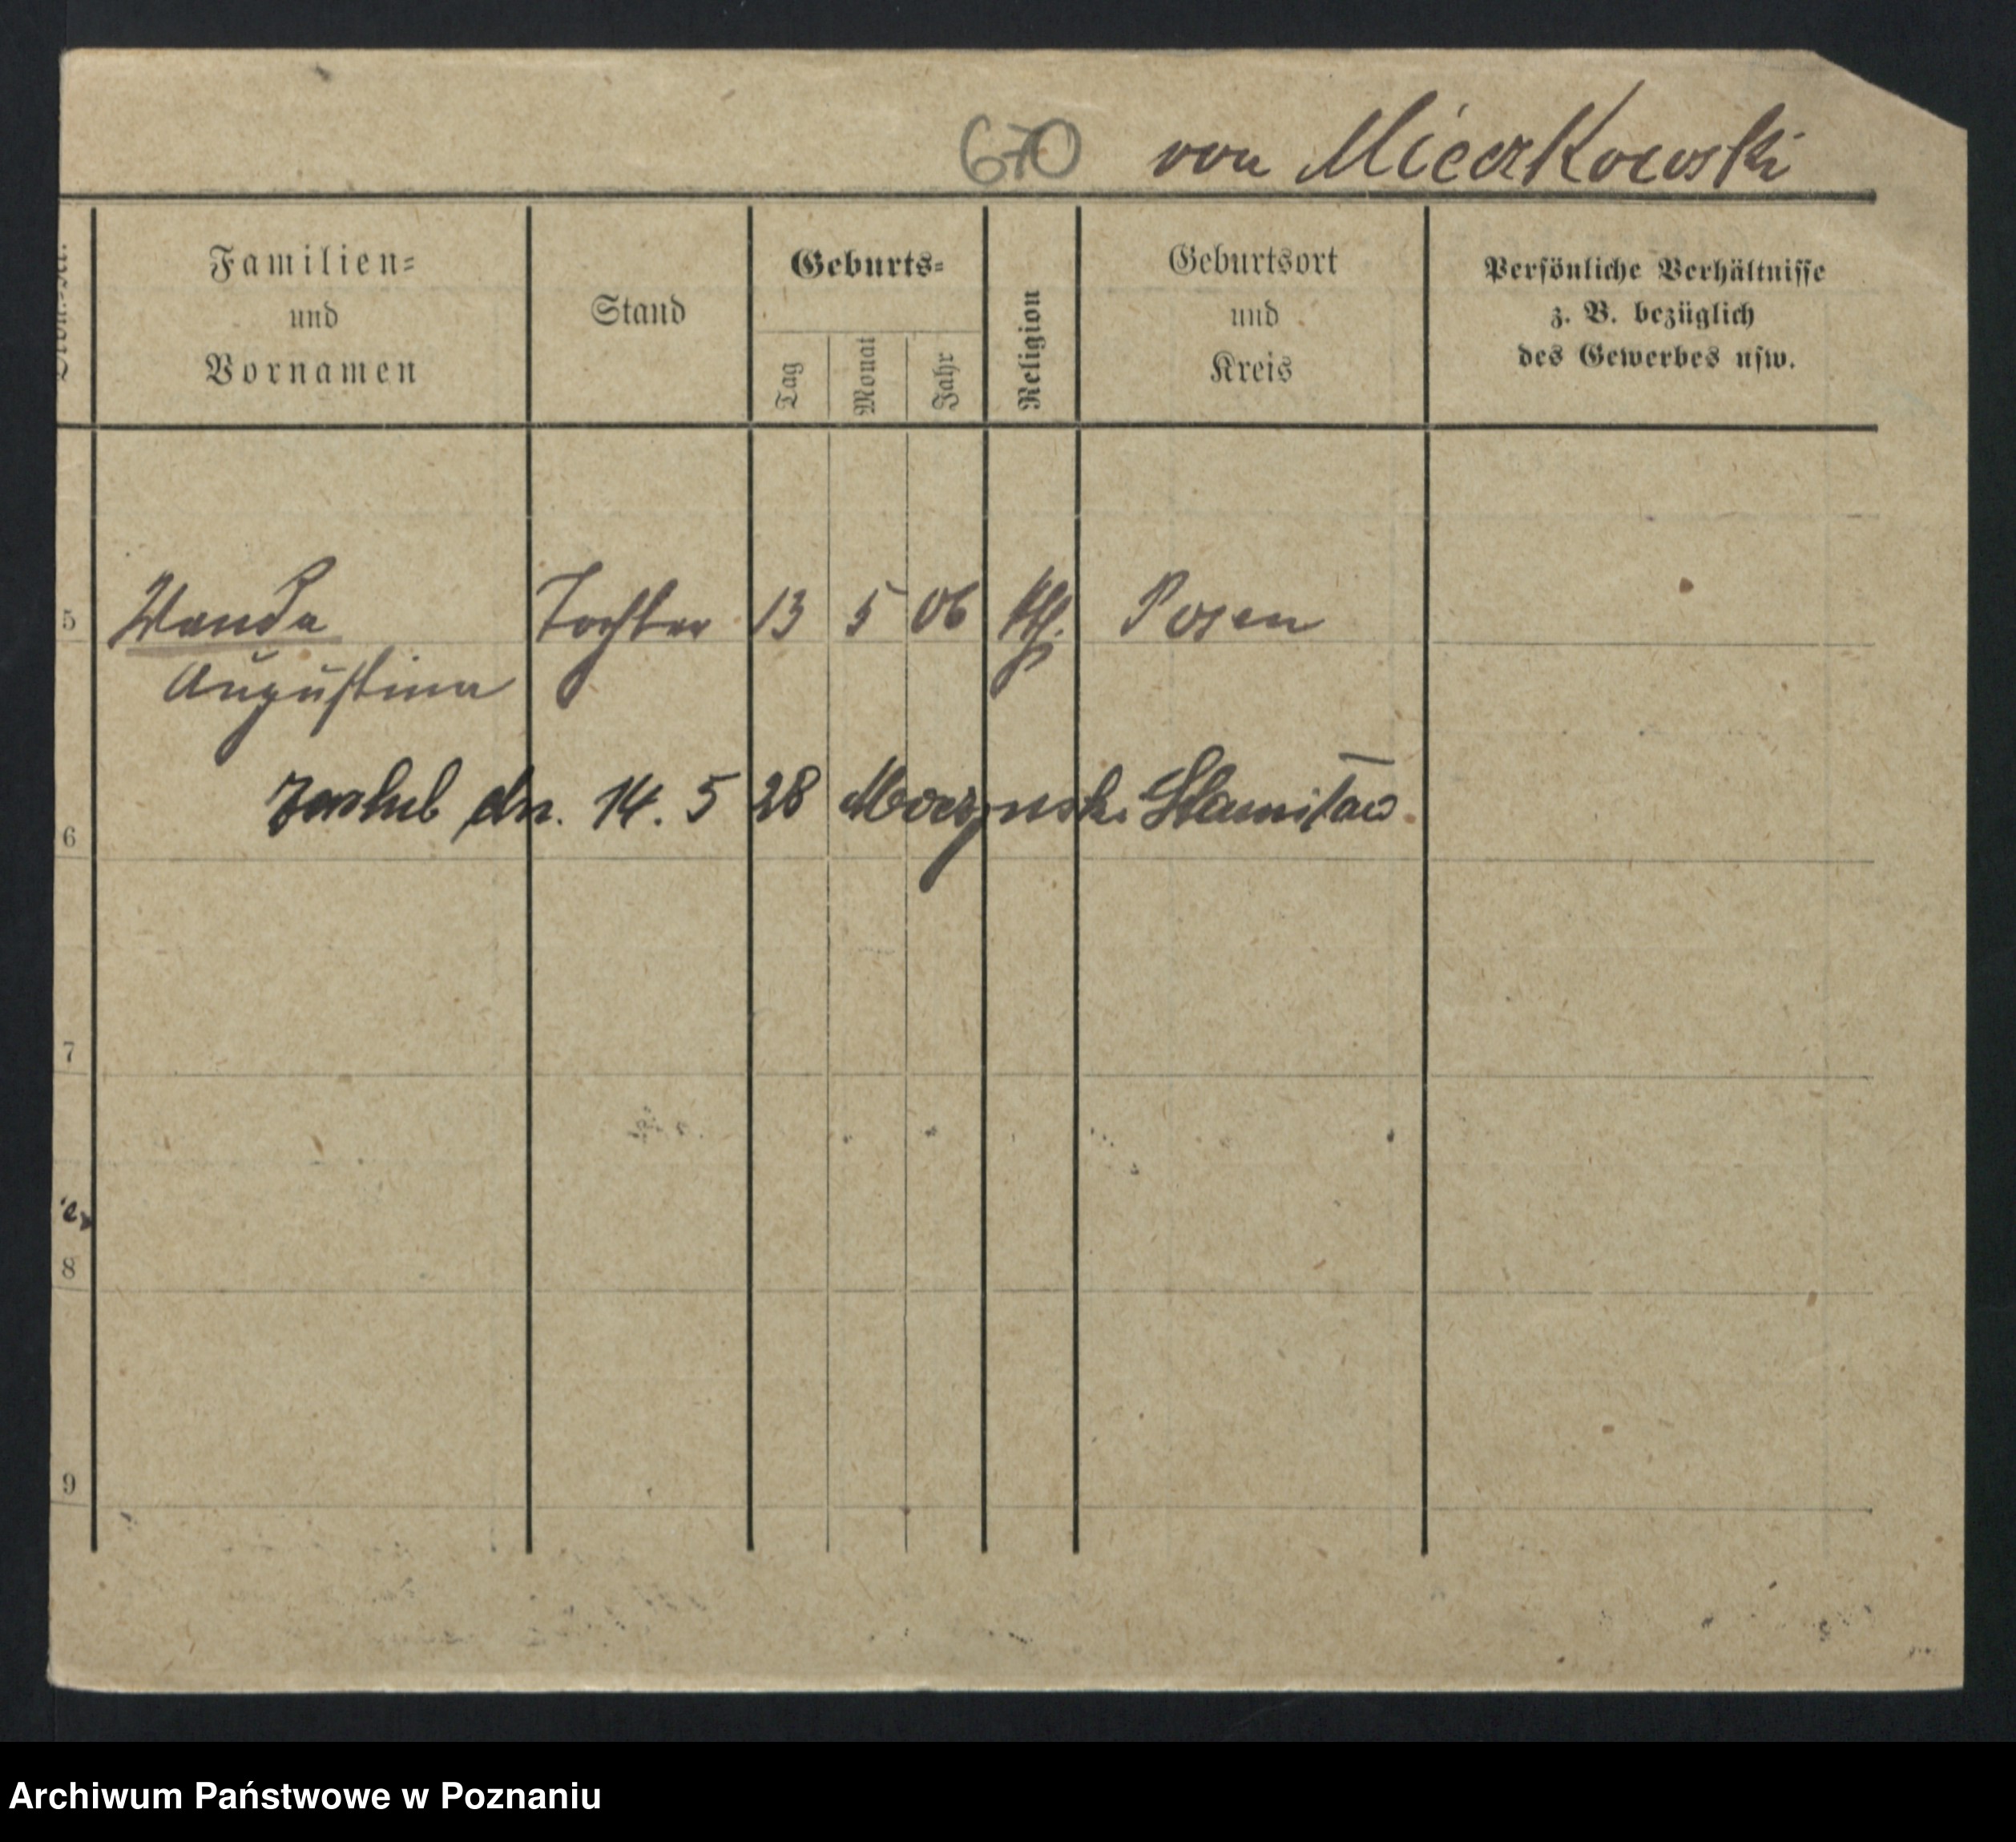 670 von Mieczkowski
Familien=
und
Vornamen
Stand
Geburts=
Tag
Monat
Jahr
Religion
Geburtsort
und
Kreis
Persönliche Verhältnisse
z. B. bezüglich
des Gewerbes usw.
5 Wanda Tochter 13 5 06 kth. Posen
Augustina
6 zaslub dn. 14. 5 28 Stanisław
7
8
9
Archiwum Państwowe w Poznaniu